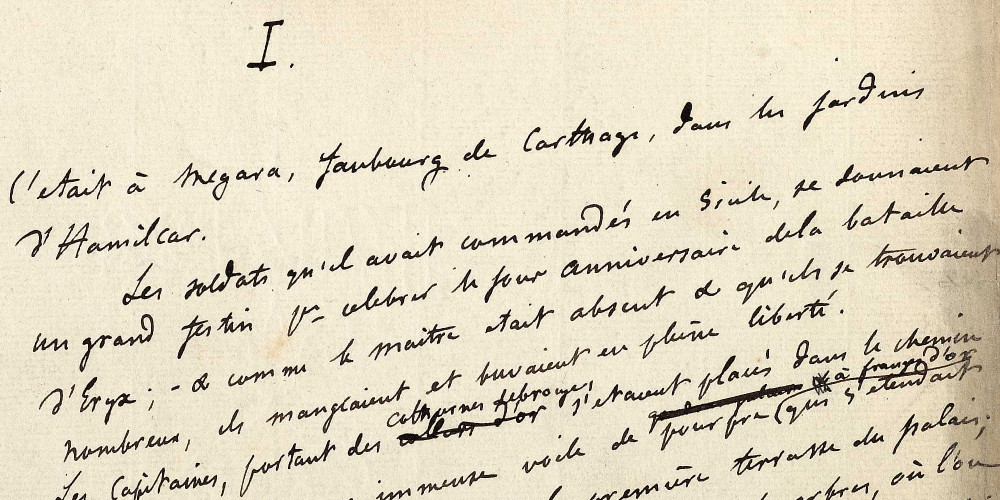 I.
C'etait à Megara, faubourg de Carthage, dans les jardins
d'Hamilcar.
Les soldats qu'il avait commandés en Sicile, se donnaient
un grand festin pr celebrer le jour anniversaire dela bataille
d'Eryx ; - & comme le maitre etait absent & qu'ils se trouvaient
nombreux, ils mangeaient et buvaient en pleine liberté.
cothurnes de bronze,
Les Capitaines, portant des s'etaient placés dans le chemin
à franges d'or
immense voile de pourpre (qui s'etendait
première terrasse du palais;
arbres, où l'on